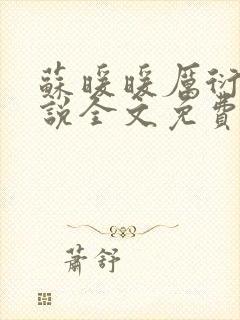 蘇暖暖厲衍
說全文免費
蕭舒